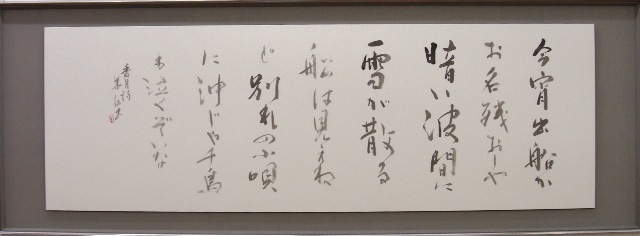 今宵出船か
お名残おしや
暗い波間に
雪が散る
船は見えね
ど別れの小唄
に沖じや千鳥
も泣くぞいな
香月詩